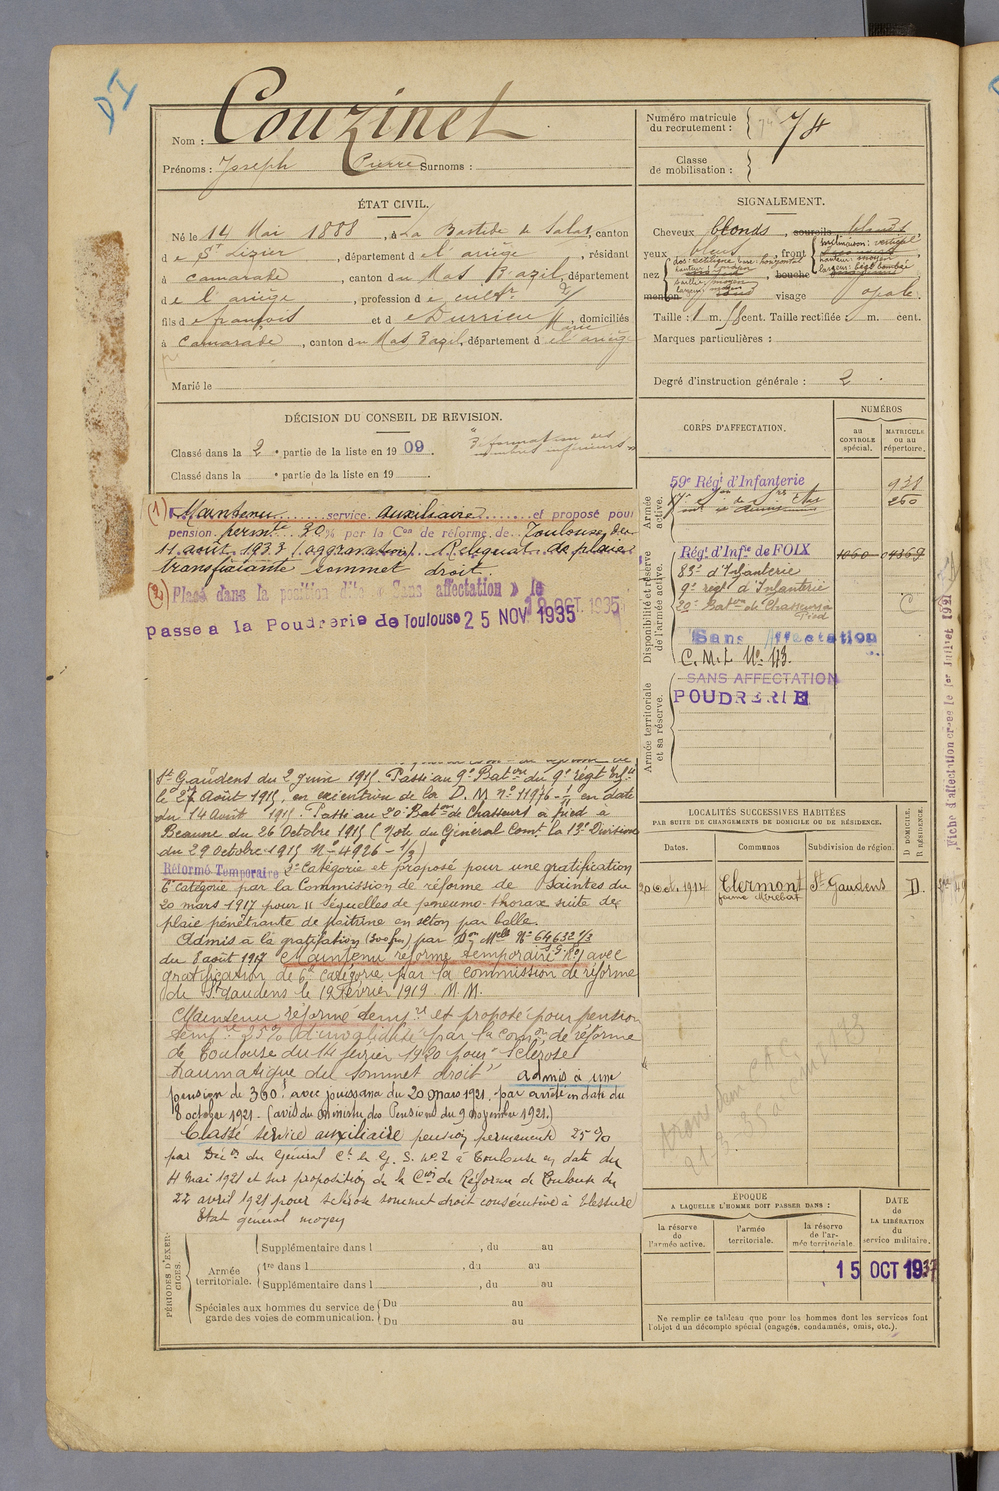 DI
Nom : Couzinet
Prénoms : Joseph Pierre Surnoms :
Numéro matricule du recrutement : 74
Classe de mobilisation :
ÉTAT CIVIL.
Né le 14 Mai 1888, à La Bastide de Salat, canton
de St Lizier, département de l'ariège, résidant
à camarade, canton du Mas d'azil, département
de l'ariège, profession de cultr
fils de françois et de Durrieu Marie, domiciliés
à Camarade, canton du Mas d'azil, département de l'ariège
Marié le
SIGNALEMENT.
Cheveux blonds, sourcils blonds
yeux bleus, front inclinaison : verticale
hauteur : moyen
largeur : bombée
nez dos : rectiligne base : horizontal
hauteur :
saillie : moyen
largeur :
bouche
menton rond visage ovale.
Taille : 1 m. cent. Taille rectifiée : m. cent.
Marques particulières :
Degré d'instruction générale : 2.
DÉCISION DU CONSEIL DE REVISION.
Classé dans la 2e partie de la liste en 1909.
Classé dans la e partie de la liste en 19
CORPS D'AFFECTATION.
NUMÉROS
au CONTROLE spécial.
MATRICULE ou au répertoire.
Armée active.
59e Régt d'Infanterie 938
260
Disponibilité et réserve de l'armée active.
Régt d'Infie de FOIX 1060 04369
83e d'Infanterie
9e régt d'Infanterie
20e Baton de Chasseurs à Pied C
Sans Affectation
C. M. I. No 43.
Armée territoriale et sa réserve.
SANS AFFECTATION
POUDRERIE
(1) Maintenu service auxiliaire et proposé pour
pension permte 30% par la Con de réforme de Toulouse, du
11 août 1933 (aggravation). Reliquat de plaie
transfixiante sommet droit.
(2) Placé dans la position dite « Sans affectation » le
18 OCT. 1935
passe a la Poudrerie de Toulouse 25 NOV. 1935
St Gaudens du 2 juin 1915. Passé au 9e Baton du 9e régt Infie
le 27 Août 1915, en exécution de la D. M. no 11976-1/11 en date
du 14 Août 1915. Passé au 20e Baton de Chasseurs à pied à
Beaune du 26 Octobre 1915 (Note du Général Comt la 13e Division
du 29 octobre 1915 No 4926-1/3)
Réformé Temporaire 2e catégorie et proposé pour une gratification
6e catégorie par la Commission de réforme de Saintes du
20 mars 1917 pour "Séquelles de pneumo-thorax suite de
plaie pénétrante de poitrine en séton par balle.
Admis à la gratification (300 frs) par Don Melle No 64632 1/3
du 8 août 1917 Maintenu réformé temporaire no 1 avec
gratification de 6e catégorie par la commission de réforme
de St gaudens le 12 Février 1919 M. M.
Maintenu réformé tempre et proposé pour pension
tempre 25% d'invalidité par la comon de réforme
de Toulouse du 14 février 1920 pour "Sclérose
traumatique du sommet droit" admis à une
pension de 360f avec jouissance du 20 mars 1921. par arrêté en date du
8 octobre 1921 - (avis du Ministre des Pensions du 9 novembre 1921.)
Classé service auxiliaire pension permanente 25%
par Décon du Général Ct le G. S. No 2 à Toulouse en date du
4 Mai 1921 et sur proposition de la Con de Réforme de Toulouse du
22 avril 1921 pour sclérose sommet droit consécutive à blessure
État général moyen
LOCALITÉS SUCCESSIVES HABITÉES
PAR SUITE DE CHANGEMENTS DE DOMICILE OU DE RÉSIDENCE.
Dates. Communes Subdivision de région. D DOMICILE. R RÉSIDENCE.
20 Oct. 1914 Clermont St Gaudens D.
ferme Mirebat
Fiche d'affectation créée le 1er Juillet 1921
PÉRIODES D'EXERCICES.
Armée territoriale.
Supplémentaire dans l , du au
1re dans l , du au
Supplémentaire dans l , du au
Spéciales aux hommes du service de garde des voies de communication.
Du au
Du au
ÉPOQUE
A LAQUELLE L'HOMME DOIT PASSER DANS :
la réserve de l'armée active.
l'armée territoriale.
la réserve de l'armée territoriale.
DATE de LA LIBÉRATION du service militaire.
15 OCT 1937
Ne remplir ce tableau que pour les hommes dont les services font
l'objet d'un décompte spécial (engagés, condamnés, omis, etc.).